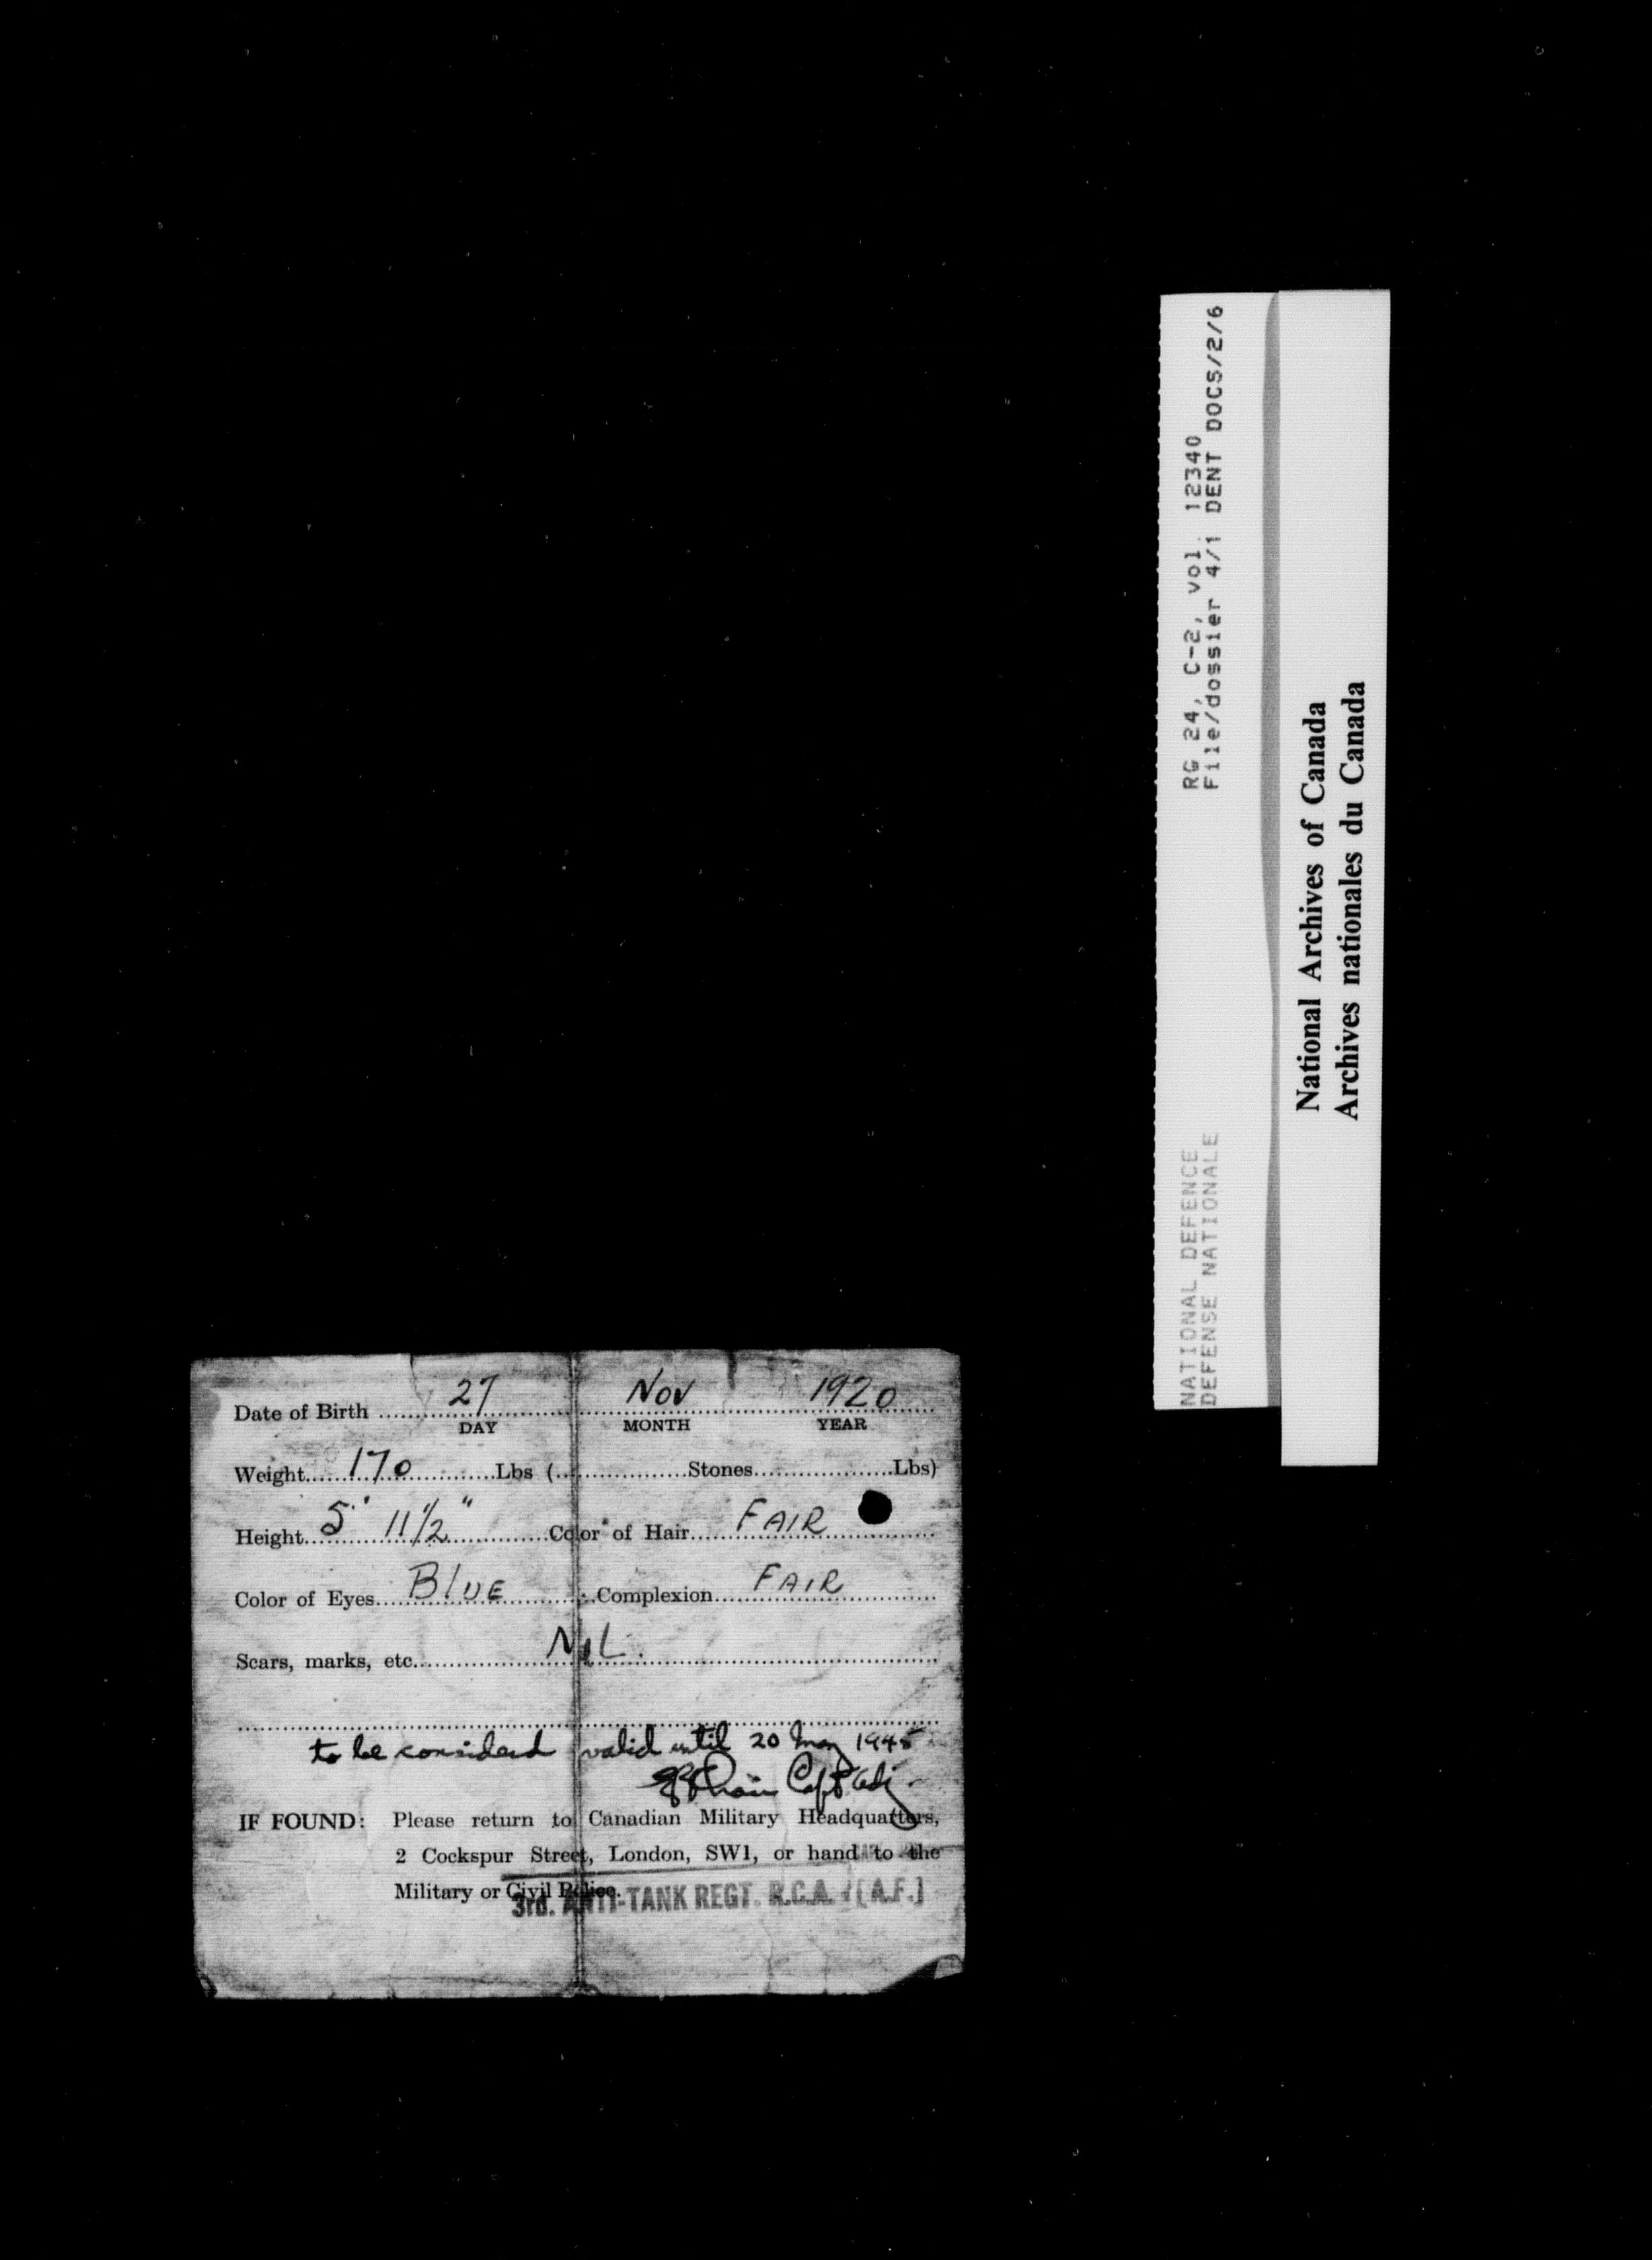 RG 24, C-2, vol. 12340
File/dossier 4/1 DENT DOCS/2/6
NATIONAL DEFENCE
DEFENSE NATIONALE
National Archives of Canada
Archives nationales du Canada
Date of Birth 27 Nov 1920
DAY MONTH YEAR
Weight 170 Lbs ( Stones Lbs)
Height 5' 11 1/2" Color of Hair FAIR
Color of Eyes BLUE Complexion FAIR
Scars, marks, etc NIL.
to be considerd valid until 20 May 1945
Capt Adj
IF FOUND: Please return to Canadian Military Headquatters,
2 Cockspur Street, London, SW1, or hand to the
Military or Civil Police.
3rd. ANTI-TANK REGT. R.C.A. [A.F.]